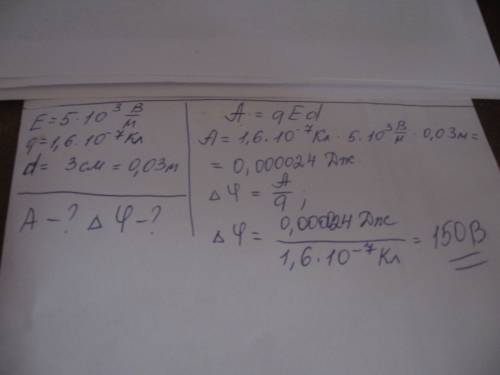 E = 5·10³ В/м
q = 1,6·10⁻⁷ Кл
d = 3 см = 0,03 м
A - ? Δφ - ?
A = qEd
A = 1,6·10⁻⁷ Кл · 5·10³ В/м · 0,03 м =
= 0,000024 Дж
Δφ = A/q ;
Δφ = 0,000024 Дж / 1,6·10⁻⁷ Кл = 150 В